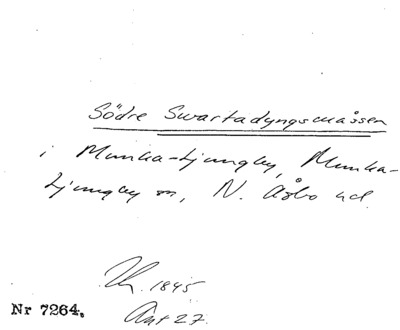 Södre Swartadyngsmåssen
i Munka-Ljungby, Munka-
Ljungby sn, N. Åsbo hd.
1845
Nr 7264.
Akt 27.